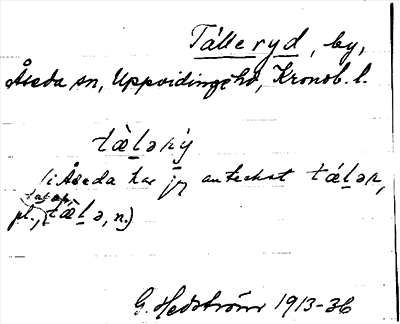 Tálleryd, by,
Åseda sn, Uppvidinge hd, Kronob. l.
tàləRy̆
(i Åseda har jag antecknat táləR,
pl., tàlə, n.)
G. Hedström 1913-36